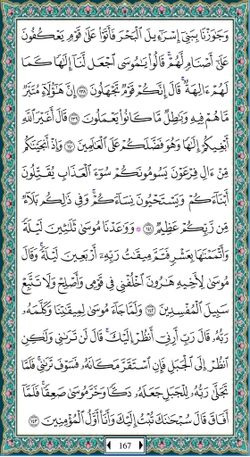 وَجَٰوَزْنَا بِبَنِىٓ إِسْرَٰٓءِيلَ ٱلْبَحْرَ فَأَتَوْا۟ عَلَىٰ قَوْمٍ يَعْكُفُونَ
عَلَىٰٓ أَصْنَامٍ لَّهُمْ ۚ قَالُوا۟ يَٰمُوسَى ٱجْعَل لَّنَآ إِلَٰهًا كَمَا
لَهُمْ ءَالِهَةٌ ۚ قَالَ إِنَّكُمْ قَوْمٌ تَجْهَلُونَ ١٣٨ إِنَّ هَٰٓؤُلَآءِ مُتَبَّرٌ
مَّا هُمْ فِيهِ وَبَٰطِلٌ مَّا كَانُوا۟ يَعْمَلُونَ ١٣٩ قَالَ أَغَيْرَ ٱللَّهِ
أَبْغِيكُمْ إِلَٰهًا وَهُوَ فَضَّلَكُمْ عَلَى ٱلْعَٰلَمِينَ ١٤٠ وَإِذْ أَنجَيْنَٰكُم
مِّنْ ءَالِ فِرْعَوْنَ يَسُومُونَكُمْ سُوٓءَ ٱلْعَذَابِ ۖ يُقَتِّلُونَ
أَبْنَآءَكُمْ وَيَسْتَحْيُونَ نِسَآءَكُمْ ۚ وَفِى ذَٰلِكُم بَلَآءٌ
مِّن رَّبِّكُمْ عَظِيمٌ ١٤١ ۞ وَوَٰعَدْنَا مُوسَىٰ ثَلَٰثِينَ لَيْلَةً
وَأَتْمَمْنَٰهَا بِعَشْرٍ فَتَمَّ مِيقَٰتُ رَبِّهِۦٓ أَرْبَعِينَ لَيْلَةً ۚ وَقَالَ
مُوسَىٰ لِأَخِيهِ هَٰرُونَ ٱخْلُفْنِى فِى قَوْمِى وَأَصْلِحْ وَلَا تَتَّبِعْ
سَبِيلَ ٱلْمُفْسِدِينَ ١٤٢ وَلَمَّا جَآءَ مُوسَىٰ لِمِيقَٰتِنَا وَكَلَّمَهُۥ
رَبُّهُۥ قَالَ رَبِّ أَرِنِىٓ أَنظُرْ إِلَيْكَ ۚ قَالَ لَن تَرَىٰنِى وَلَٰكِنِ
ٱنظُرْ إِلَى ٱلْجَبَلِ فَإِنِ ٱسْتَقَرَّ مَكَانَهُۥ فَسَوْفَ تَرَىٰنِى ۚ فَلَمَّا
تَجَلَّىٰ رَبُّهُۥ لِلْجَبَلِ جَعَلَهُۥ دَكًّا وَخَرَّ مُوسَىٰ صَعِقًا ۚ فَلَمَّآ
أَفَاقَ قَالَ سُبْحَٰنَكَ تُبْتُ إِلَيْكَ وَأَنَا۠ أَوَّلُ ٱلْمُؤْمِنِينَ ١٤٣
167